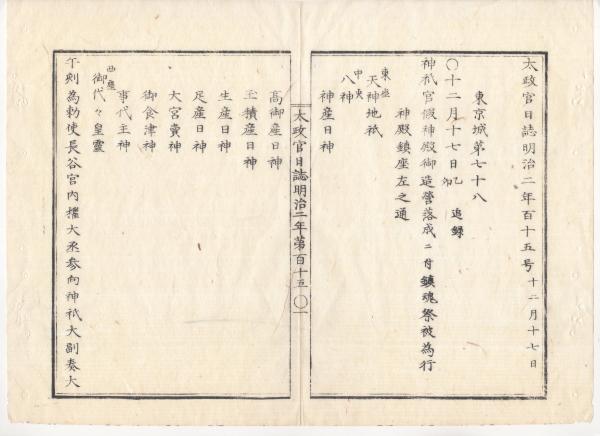 太政官日誌明治二年百十五号 十二月十七日
東京城第七十八
〇十二月十七日 追録
神祇官假神殿御造營落成ニ付鎮魂祭被為行
神殿鎮座左之通
東座
天神地祇
中央
八神
神産日神
太政官日誌明治二年第百十五〇一
高御産日神
玉積産日神
生産日神
足産日神
大宮賣神
御食津神
事代主神
西座
御代々皇靈
午刻為勅使長谷宮内權大丞参向神祇大副奏大